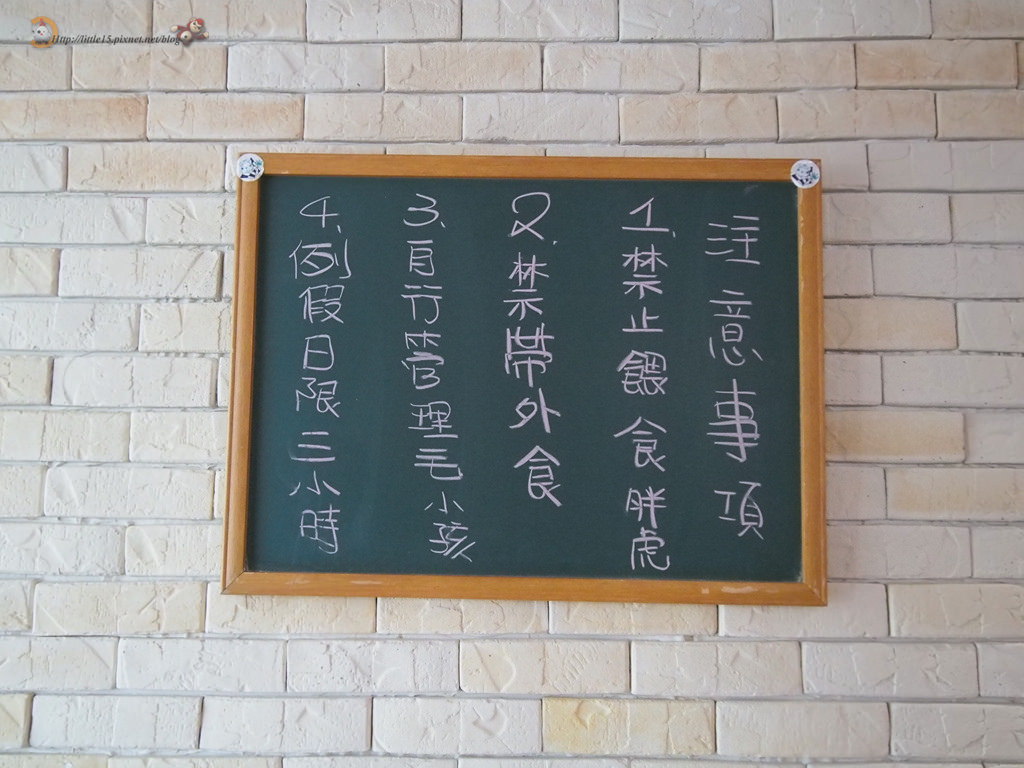 Http://little15.pixnet.net/blog
注意事項
1.禁止餵食胖虎
2.禁帶外食
3.自行管理毛小孩
4.例假日限三小時